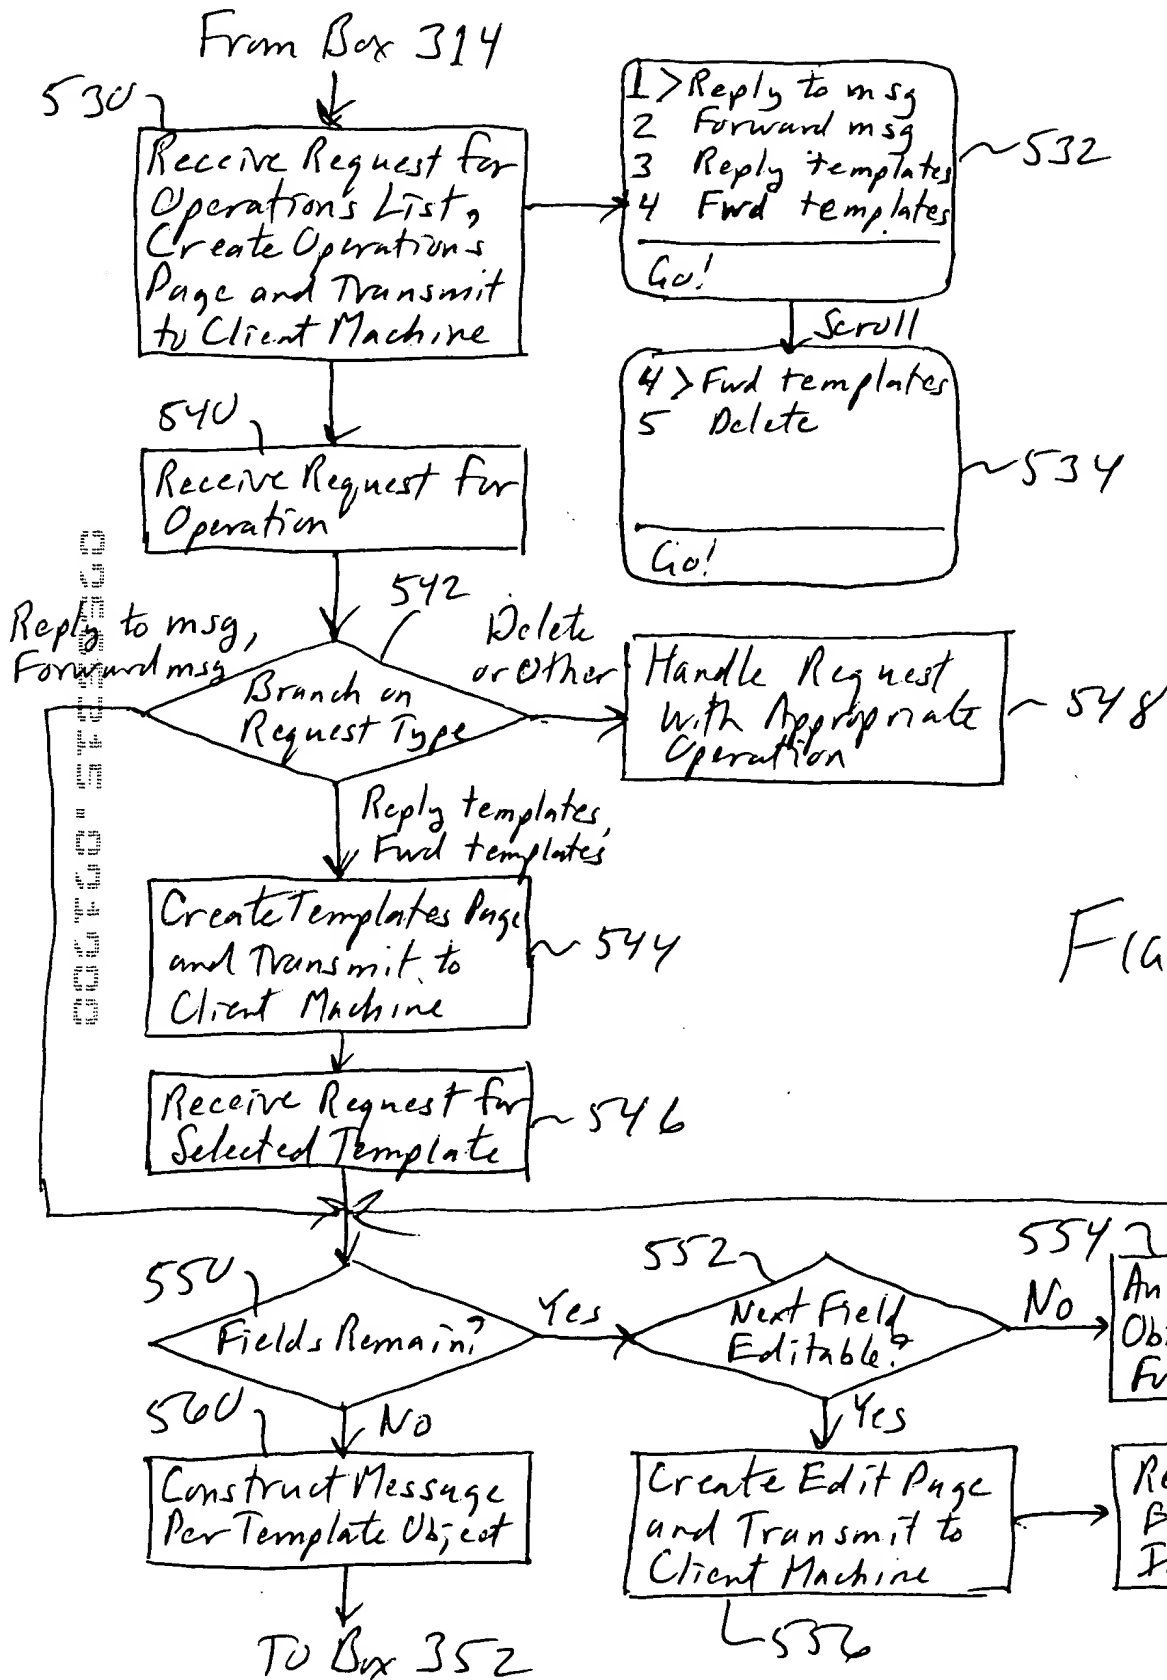 From Box 314
530
Receive Request for
Operations List,
Create Operations
Page and Transmit
to Client Machine
1 > Reply to msg
2 Forward msg
3 Reply templates
4 Fwd templates
Go!
532
Scroll
4 > Fwd templates
5 Delete
Go!
534
540
Receive Request for
Operation
542
Reply to msg,
Forward msg
Delete
or Other
Branch on
Request Type
Handle Request
with Appropriate
Operation
548
Reply templates,
Fwd templates
Create Templates Page
and Transmit to
Client Machine
544
FIG
Receive Request for
Selected Template
546
550
Fields Remain?
Yes
552
Next Field
Editable?
No
554
An
Obj
Fu
560
No
Yes
Construct Message
Per Template Object
Create Edit Page
and Transmit to
Client Machine
556
Re
B
I
To Box 352